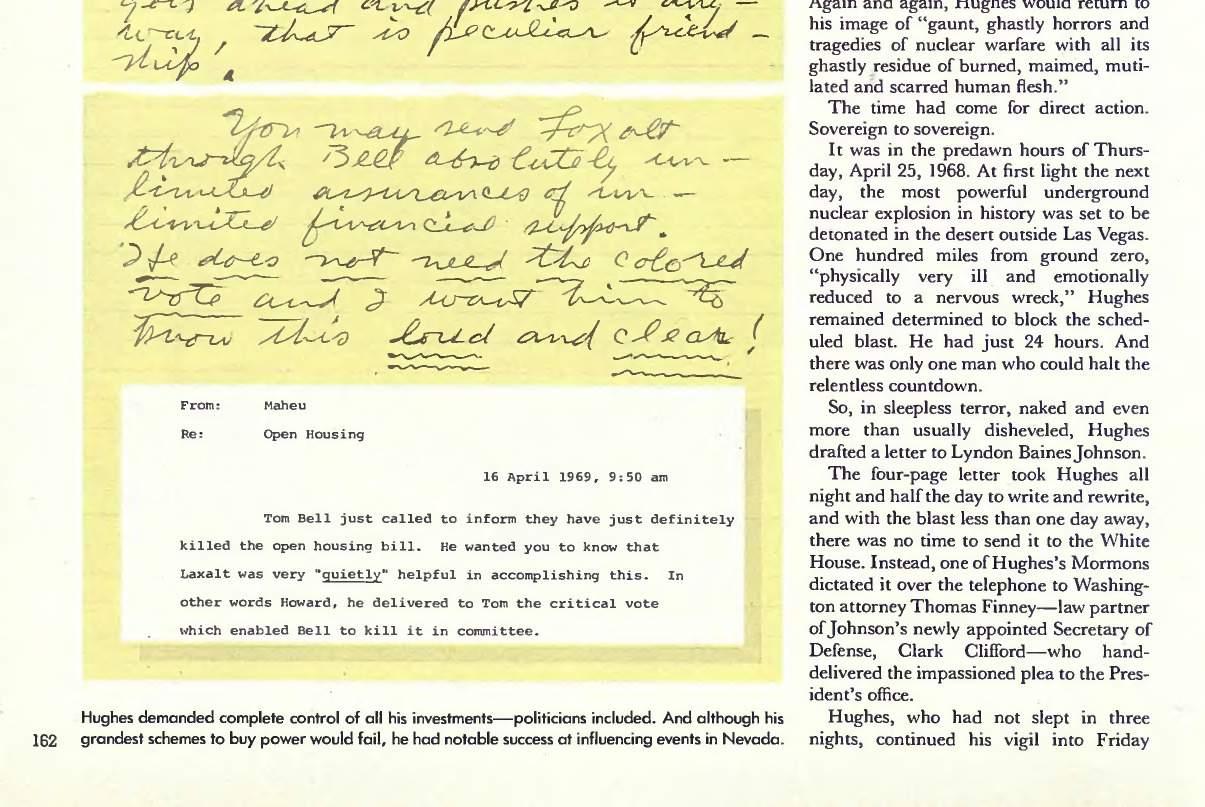 goes ahead and pushes it any-
way, that is peculiar friend-
ship.
You may send Laxalt
through Bell absolutely un-
limited assurances of un-
limited financial support.
He does not need the colored
vote and I want him to
know this loud and clear!
From: Maheu
Re: Open Housing
16 April 1969, 9:50 am
Tom Bell just called to inform they have just definitely
killed the open housing bill. He wanted you to know that
Laxalt was very "quietly" helpful in accomplishing this. In
other words Howard, he delivered to Tom the critical vote
which enabled Bell to kill it in committee.
Hughes demanded complete control of all his investments—politicians included. And although his
grandest schemes to buy power would fail, he had notable success at influencing events in Nevada.
162
Again and again, Hughes would return to
his image of “gaunt, ghastly horrors and
tragedies of nuclear warfare with all its
ghastly residue of burned, maimed, muti-
lated and scarred human flesh.”
The time had come for direct action.
Sovereign to sovereign.
It was in the predawn hours of Thurs-
day, April 25, 1968. At first light the next
day, the most powerful underground
nuclear explosion in history was set to be
detonated in the desert outside Las Vegas.
One hundred miles from ground zero,
“physically very ill and emotionally
reduced to a nervous wreck,” Hughes
remained determined to block the sched-
uled blast. He had just 24 hours. And
there was only one man who could halt the
relentless countdown.
So, in sleepless terror, naked and even
more than usually disheveled, Hughes
drafted a letter to Lyndon Baines Johnson.
The four-page letter took Hughes all
night and half the day to write and rewrite,
and with the blast less than one day away,
there was no time to send it to the White
House. Instead, one of Hughes’s Mormons
dictated it over the telephone to Washing-
ton attorney Thomas Finney—law partner
of Johnson’s newly appointed Secretary of
Defense, Clark Clifford—who hand-
delivered the impassioned plea to the Pres-
ident’s office.
Hughes, who had not slept in three
nights, continued his vigil into Friday